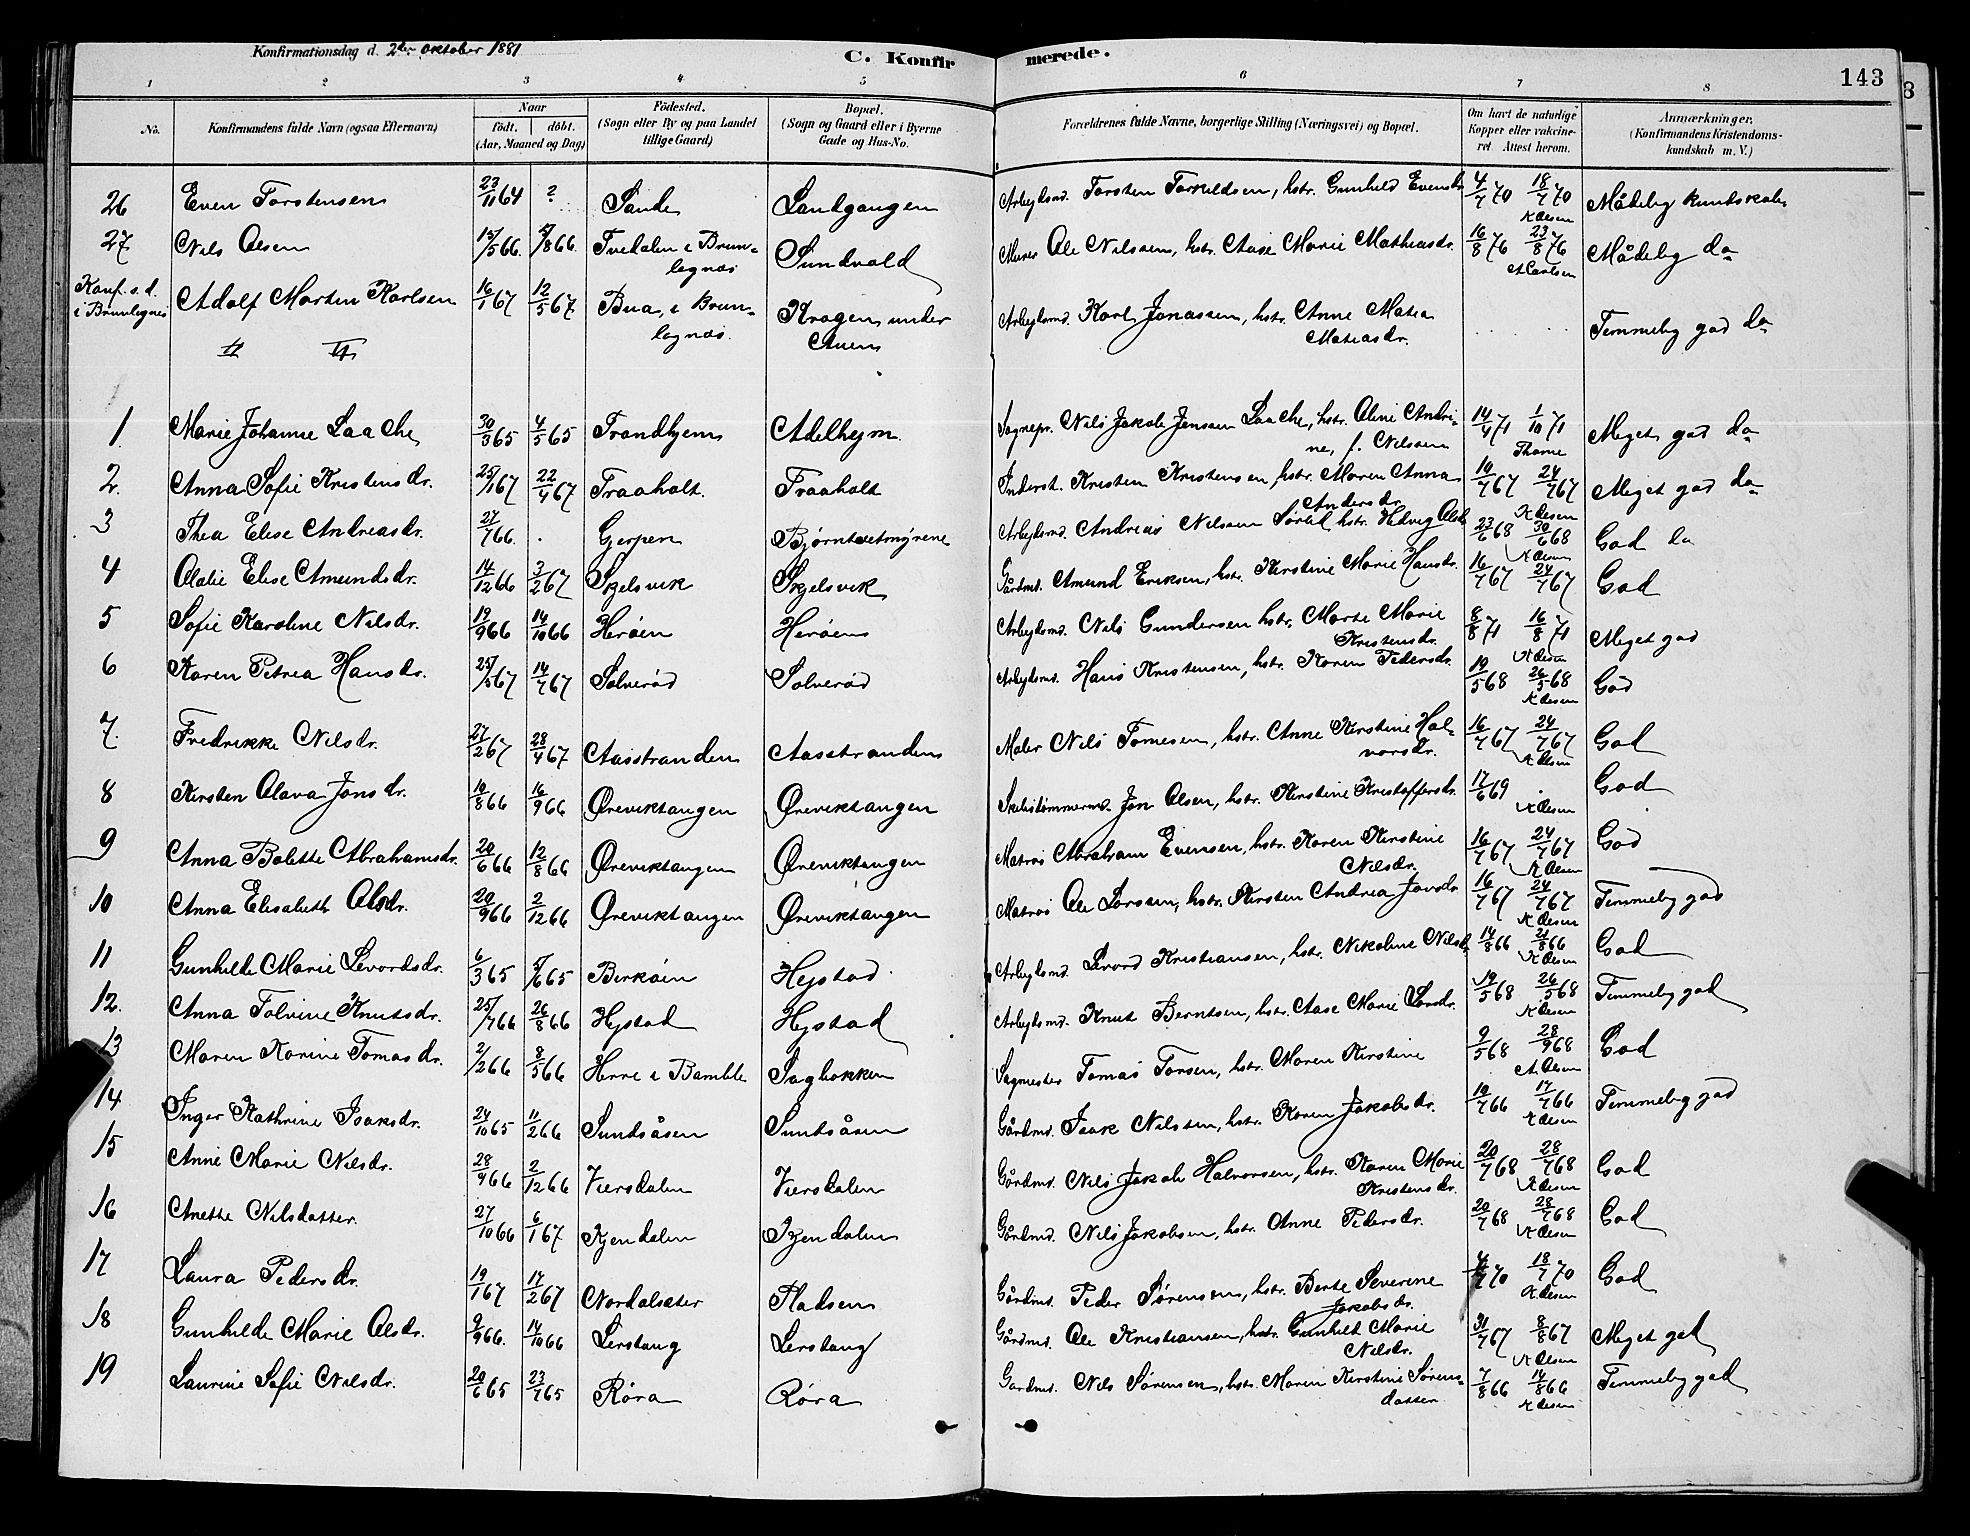 Konfirmationsdag d. 2den oktober 1881
C. Konfirmerede.
143
1 2 3 4 5 6 7 8
No. Konfirmandens fulde Navn (ogsaa Efternavn) Naar født. døbt. (Aar, Maaned og Dag) Fødested. (Sogn eller By og paa Landet tillige Gaard) Bopæl. (Sogn og Gaard eller i Byerne Gade og Hus-No. Forældrenes fulde Navne, borgerlige Stilling (Næringsvei) og Bopæl. Om havt de naturlige Kopper eller vakcineret. Attest herom. Anmærkninger. (Konfirmandens Kristendomskundskab m. V.)
26 Even Torstensen 23/11 64 ? Sande Landgangen Arbeidsmd. Torsten Torkildsen, hstr. Gunhild Evensdr. 4/7 70 18/7 70 K Olsen Mådelig kundskab
27 Nils Olsen 15/5 66. 5/8 66. Tvedalen i Brunlagnæs Sundvald Murer Ole Nilssen, hstr. Aase Marie Mathiasdr. 16/8 76 23/8 76 Mådelig do
Konf. s. d. i Brunlagnes Adolf Morten Karlsen 16/1 67 12/5 67 Bua, i Brunlagnæs. Krogen under Auen Arbejdsmd. Karl Jonassen, hstr. Anne Matea Mateasdr. Temmelig god do
1 Marie Johanne Laache 30/3 65 4/5 65 Trondhjem Adelhejm Sognepr. Nils Jakob Jensen Laache, hstr. Oline Andrine, f. Nilssen 14/4 71 1/10 71 Thome Meget god do
2. Anna Sofie Kristensdr. 25/1 67 22/4 67 Traaholt. Traaholt Inderst. Kristen Kristensen, hstr. Maren Anna Andersdr. 10/7 67 24/7 67 K Olsen Meget god do
3 Thea Elise Andreasdr. 27/7 66. Gerpen Bjørntvetmyrene Arbejdsmd. Andreas Nilssen hstr. Hedvig Olsdr. 23/6 68 30/6 68 K Olsen God do
4 Olalie Elise Amundsdr. 14/12 66 3/2 67 Skjelsvik Skjelsvik Gårdmd. Amund Eriksen, hstr. Kirstine Marie Hansdr. 16/7 67 24/7 67 God
5 Sofie Karoline Nilsdr. 19/9 66 14/10 66 Herøen Herøen Arbejdsmd. Nils Gundersen hstr. Marte Marie Kristensdr. 8/8 71 16/8 71 K Olsen Meget god
6 Karen Petrea Hansdr. 25/5 67 14/7 67 Solverød Solverød Arbejdsmd. Hans Kristensen, hstr. Karen Pedersdr. 19/5 68 26/5 68 K Olsen God
7. Fredrikke Nilsdr. 27/2 67 28/4 67 Aasstranden Aasstranden Maler Nils Tomesen, hstr. Anne Kirstine Halvorsdr. 16/7 67 24/7 67 K Olsen God
8 Kirsten Olava Jonsdr. 10/8 66 16/9 66 Ørevikstangen Ørevikstangen Skibstømmermd. Jon Olsen, hstr. Kirstine Kristoffersdr. 17/6 69 K Olsen God
9 Anna Bolette Abrahamsdr. 20/6 66 12/8 66 Ørevikstangen Ørevikstangen Matros Abraham Evensen, hstr. Karen Kirstine Nilsdr. 16/7 67 24/7 67 K Olsen God
10 Anna Elisabeth Olsdr. 20/9 66 2/12 66 Ørevikstangen Ørevikstangen Matros Ole Larssen, hstr. Kirsten Andrea Jonsdr 16/7 67 24/7 67 K Olsen Temmelig god
11 Gunhilde Marie Levordsdr. 6/3 65 5/6 65 Birkøen Hejstad Arbejdsmd. Levord Kristiansen, hstr. Nikoline Nilsdr. 14/8 66 21/8 66 K Olsen God
12. Anna Tolvine Knutsdr. 25/7 66 26/8 66 Hejstad Hejstad Arbejdsmd. Knut Berntsen, hstr. Aase Marie Larsdr. 19/5 68 26/5 68 K Olsen Temmelig god
13 Maren Karine Tomasdr. 2/2 66 8/5 66 Herre i Bamble Saghokken Sagmester Tomas Torsen, hstr. Maren Kirstine 9/5 68 28/9 68 God
14 Inger Kathrine Isaksdr. 24/10 65 11/2 66 Sundsåsen Sundsåsen Gårdmd. Isak Nilsen, hstr. Karen Jakobsdr. 10/7 66 17/7 66 K Olsen Temmelig god
15 Anne Marie Nilsdr. 28/9 66 2/12 66 Viersdalen Viersdalen Gårdmd. Nils Jakob Halvorsen, hstr. Karen Marie Kristensdr. 20/7 68 28/7 68 K Olsen God
16 Anette Nilsdatter 27/10 66 6/1 67 Kjendalen Kjendalen Gårdmd. Nils Jakobsen, hstr. Anne Pedersdr. 20/7 68 28/7 68 K Olsen God
17 Laura Pedersdr. 19/1 67 17/2 67 Nordalsæter Pladsen Gårdmd. Peder Sørensen, hstr. Berte Severine Jakobsdr. 4/7 70 18/7 70 K Olsen God
18 Gunhilde Marie Olsdr. 9/9 66. 14/10 66 Lerstang Lerstang Gårdmd. Ole Kristiansen, hstr. Gunhild Marie Nilsdr. 31/7 67 8/8 67 K Olsen Meget god
19 Laurine Sofie Nilsdr. 20/6 65 23/7 65 Røra Røra Gårdmd. Nils Sørensen, hstr. Maren Kirstine Sørensdatter 7/8 66 14/8 66 K Olsen Temmelig god